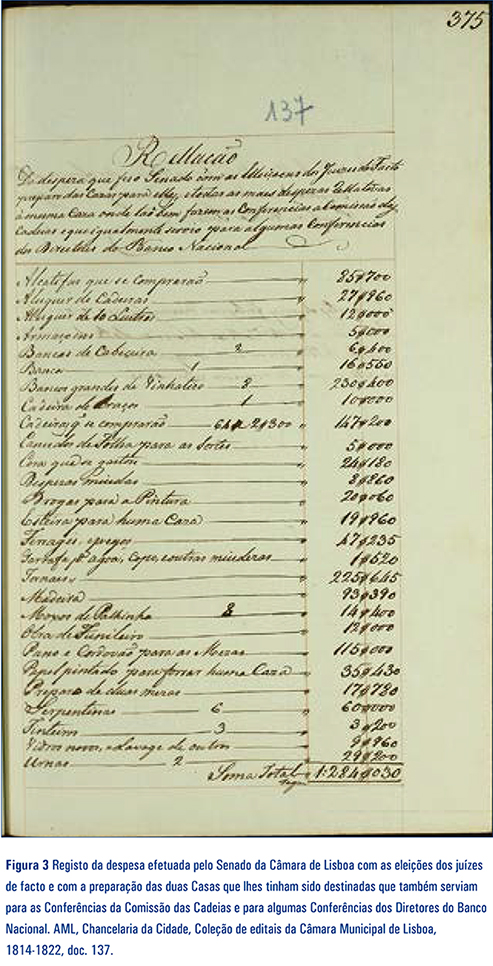 375
137
Rellação
Da despeza que fes o Senado com as Elleiçoens dos Juizes de Facto
preparo das Cazas para elles, e todas as mais despezas rellativas
á mesma Caza onde tão bem fazem as Conferencias a Comissão das
Cadeas e que igualmente servio para algumas Conferencias
dos Directores do Banco Nacional
Alcatifas que se comprarão 85$700
Aluguer de Cadeiras 27$960
Alluguer de 10 Lustres 12$000
Armaçoens 5$000
Bancas de Cabeceira 2 6$400
Banca 1 16$550
Bancos grandes de Vinhatico 8 230$400
Cadeira de Braços 1 10$000
Cadeiras q se comprarão 64 a 2$300 147$200
Canudos de Folha para as Sortes 5$000
Cera que se gastou 24$180
Despezas miudas 8$860
Drogas para a Pintura 20$060
Esteira para huma Caza 19$960
Ferrages, e pregos 47$235
Garrafa, pª agoa, Copo, e outras miudezas 1$520
Jornaes 225$645
Madeira 93$390
Moxos de Palhinha 8 14$400
Obra de Funileiro 12$000
Pano e Cordovão para as Mezas 115$000
Papel pintado para forrar huma Caza 35$430
Preparo de duas mezas 17$780
Serpentinas 6 60$000
Tinteiros 3 3$200
Vidros novos, e lavage de outros 9$960
Urnas 2 29$200
Soma Total 1:284$030
Figura 3 Registo da despesa efetuada pelo Senado da Câmara de Lisboa com as eleições dos juízes
de facto e com a preparação das duas Casas que lhes tinham sido destinadas que também serviam
para as Conferências da Comissão das Cadeias e para algumas Conferências dos Diretores do Banco
Nacional. AML, Chancelaria da Cidade, Coleção de editais da Câmara Municipal de Lisboa,
1814-1822, doc. 137.